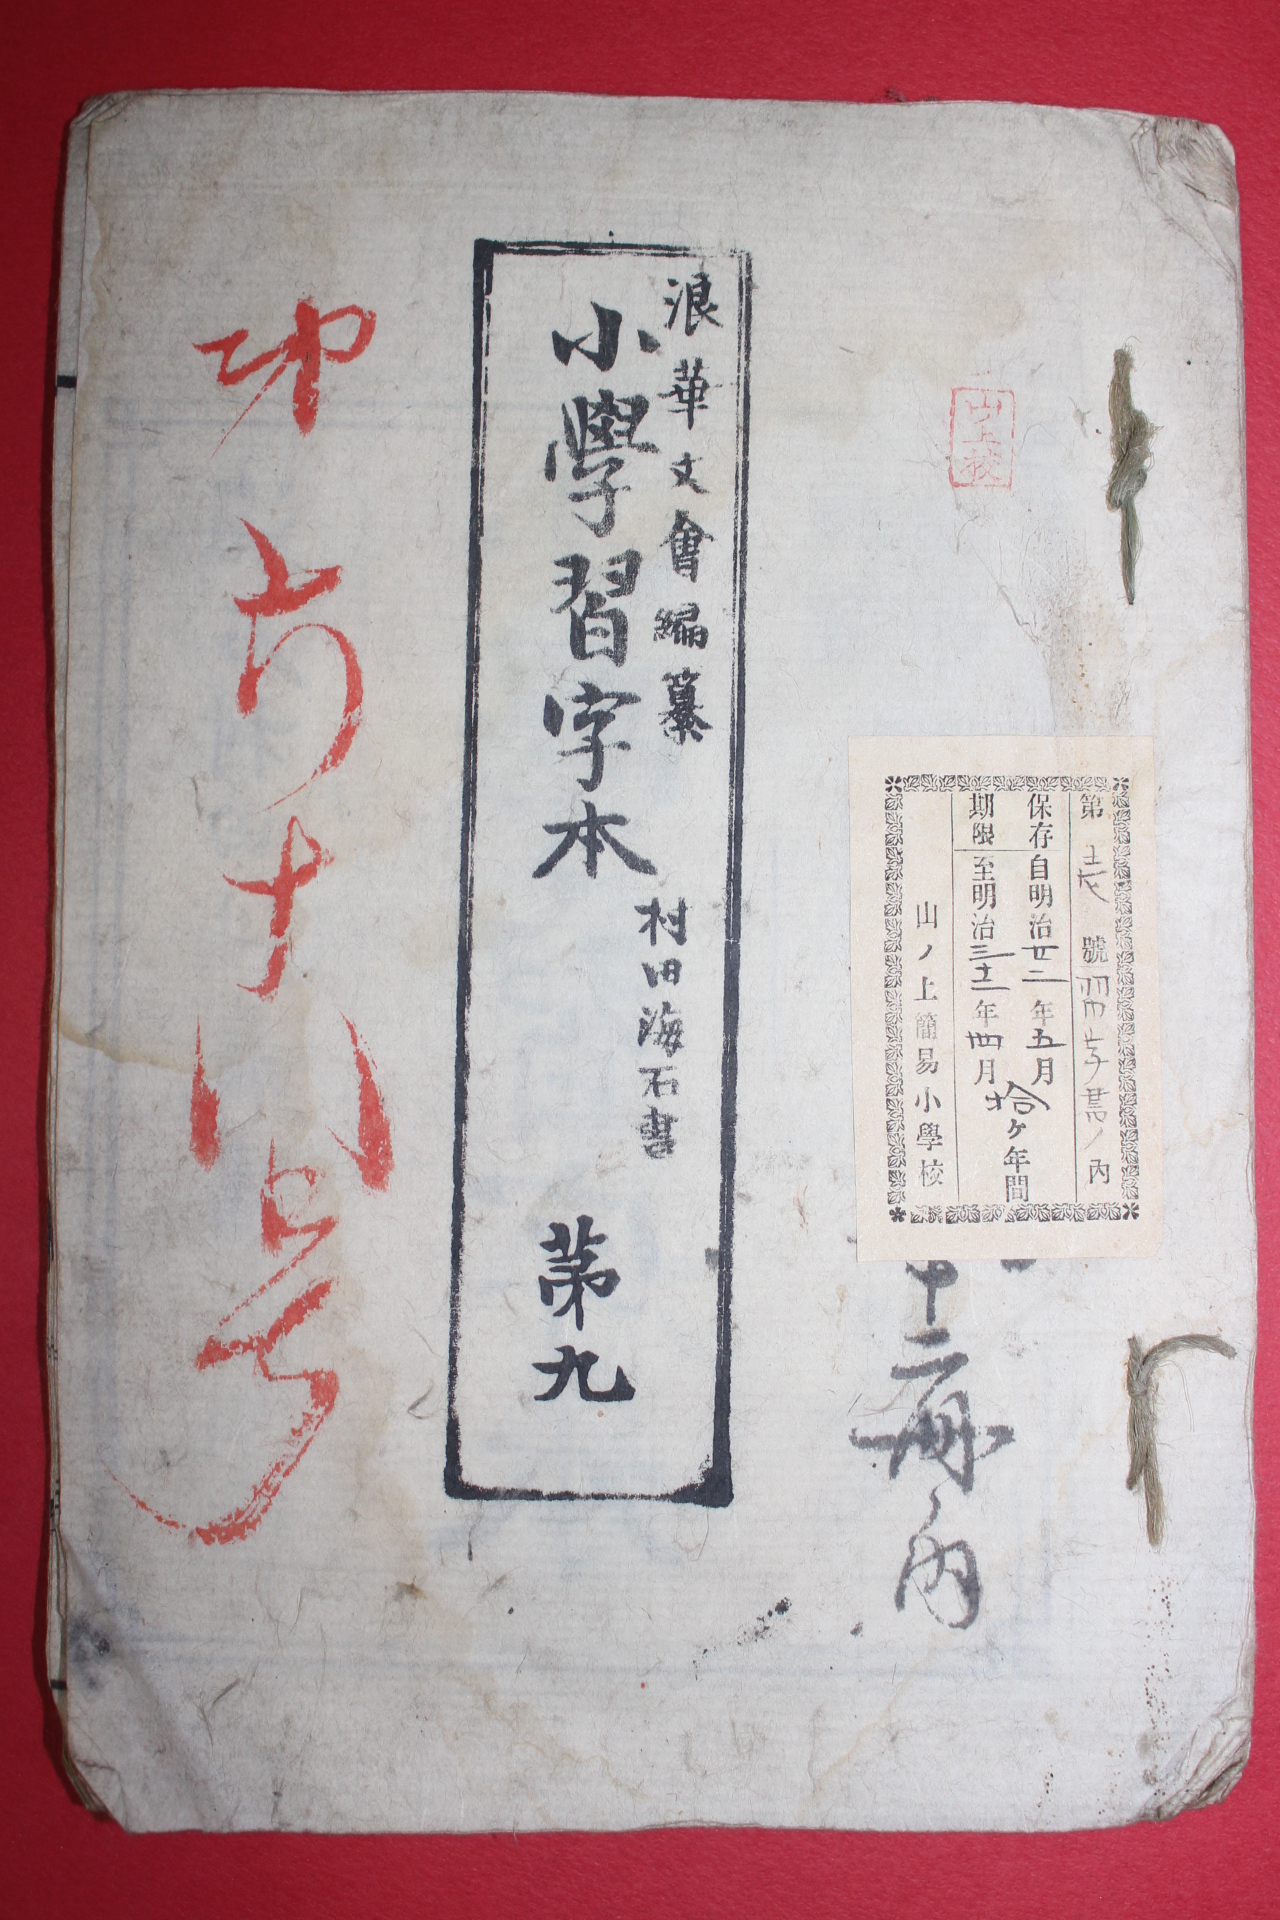 山上校
第 壱 號 習字書ノ内
保存期限
自明治廿二年五月
至明治三十二年四月
拾ヶ年間
山ノ上簡易小學校
十二冊ノ内
浪華文會編纂
小學習字本 第九
村田海石書
六十八号